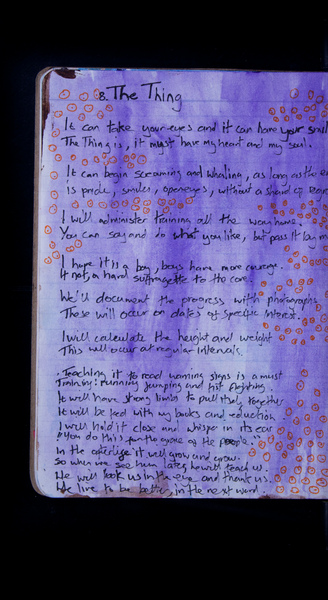 8. The Thing
It can take your eyes and it can have your smile
The Thing is, it must have my heart and my soul.
It can begin screaming and whaling, as long as the
is pride, smiles, open eyes, without a shard of
I will administer training all the way home.
You can say and do what you like, but pass it by m
I hope it is a boy, boys have more courage.
If not, a hard suffragette to the core.
We'll document the progress with photographs
These will occur on dates of specific interest.
I will calculate the height and weight
This will occur at regular intervals.
Teaching it to read warning signs is a must
Training: running jumping and fist fighting.
It will have strong limbs to pull them together
It will be fed with my books and eduction
I will hold it close and whisper in its ear
"you do this for the good of the people."
In the afterlife it will grow and grow.
So when we see him later, he will teach us.
He will look us in the eye and thank us.
We live to be better, in the next world.